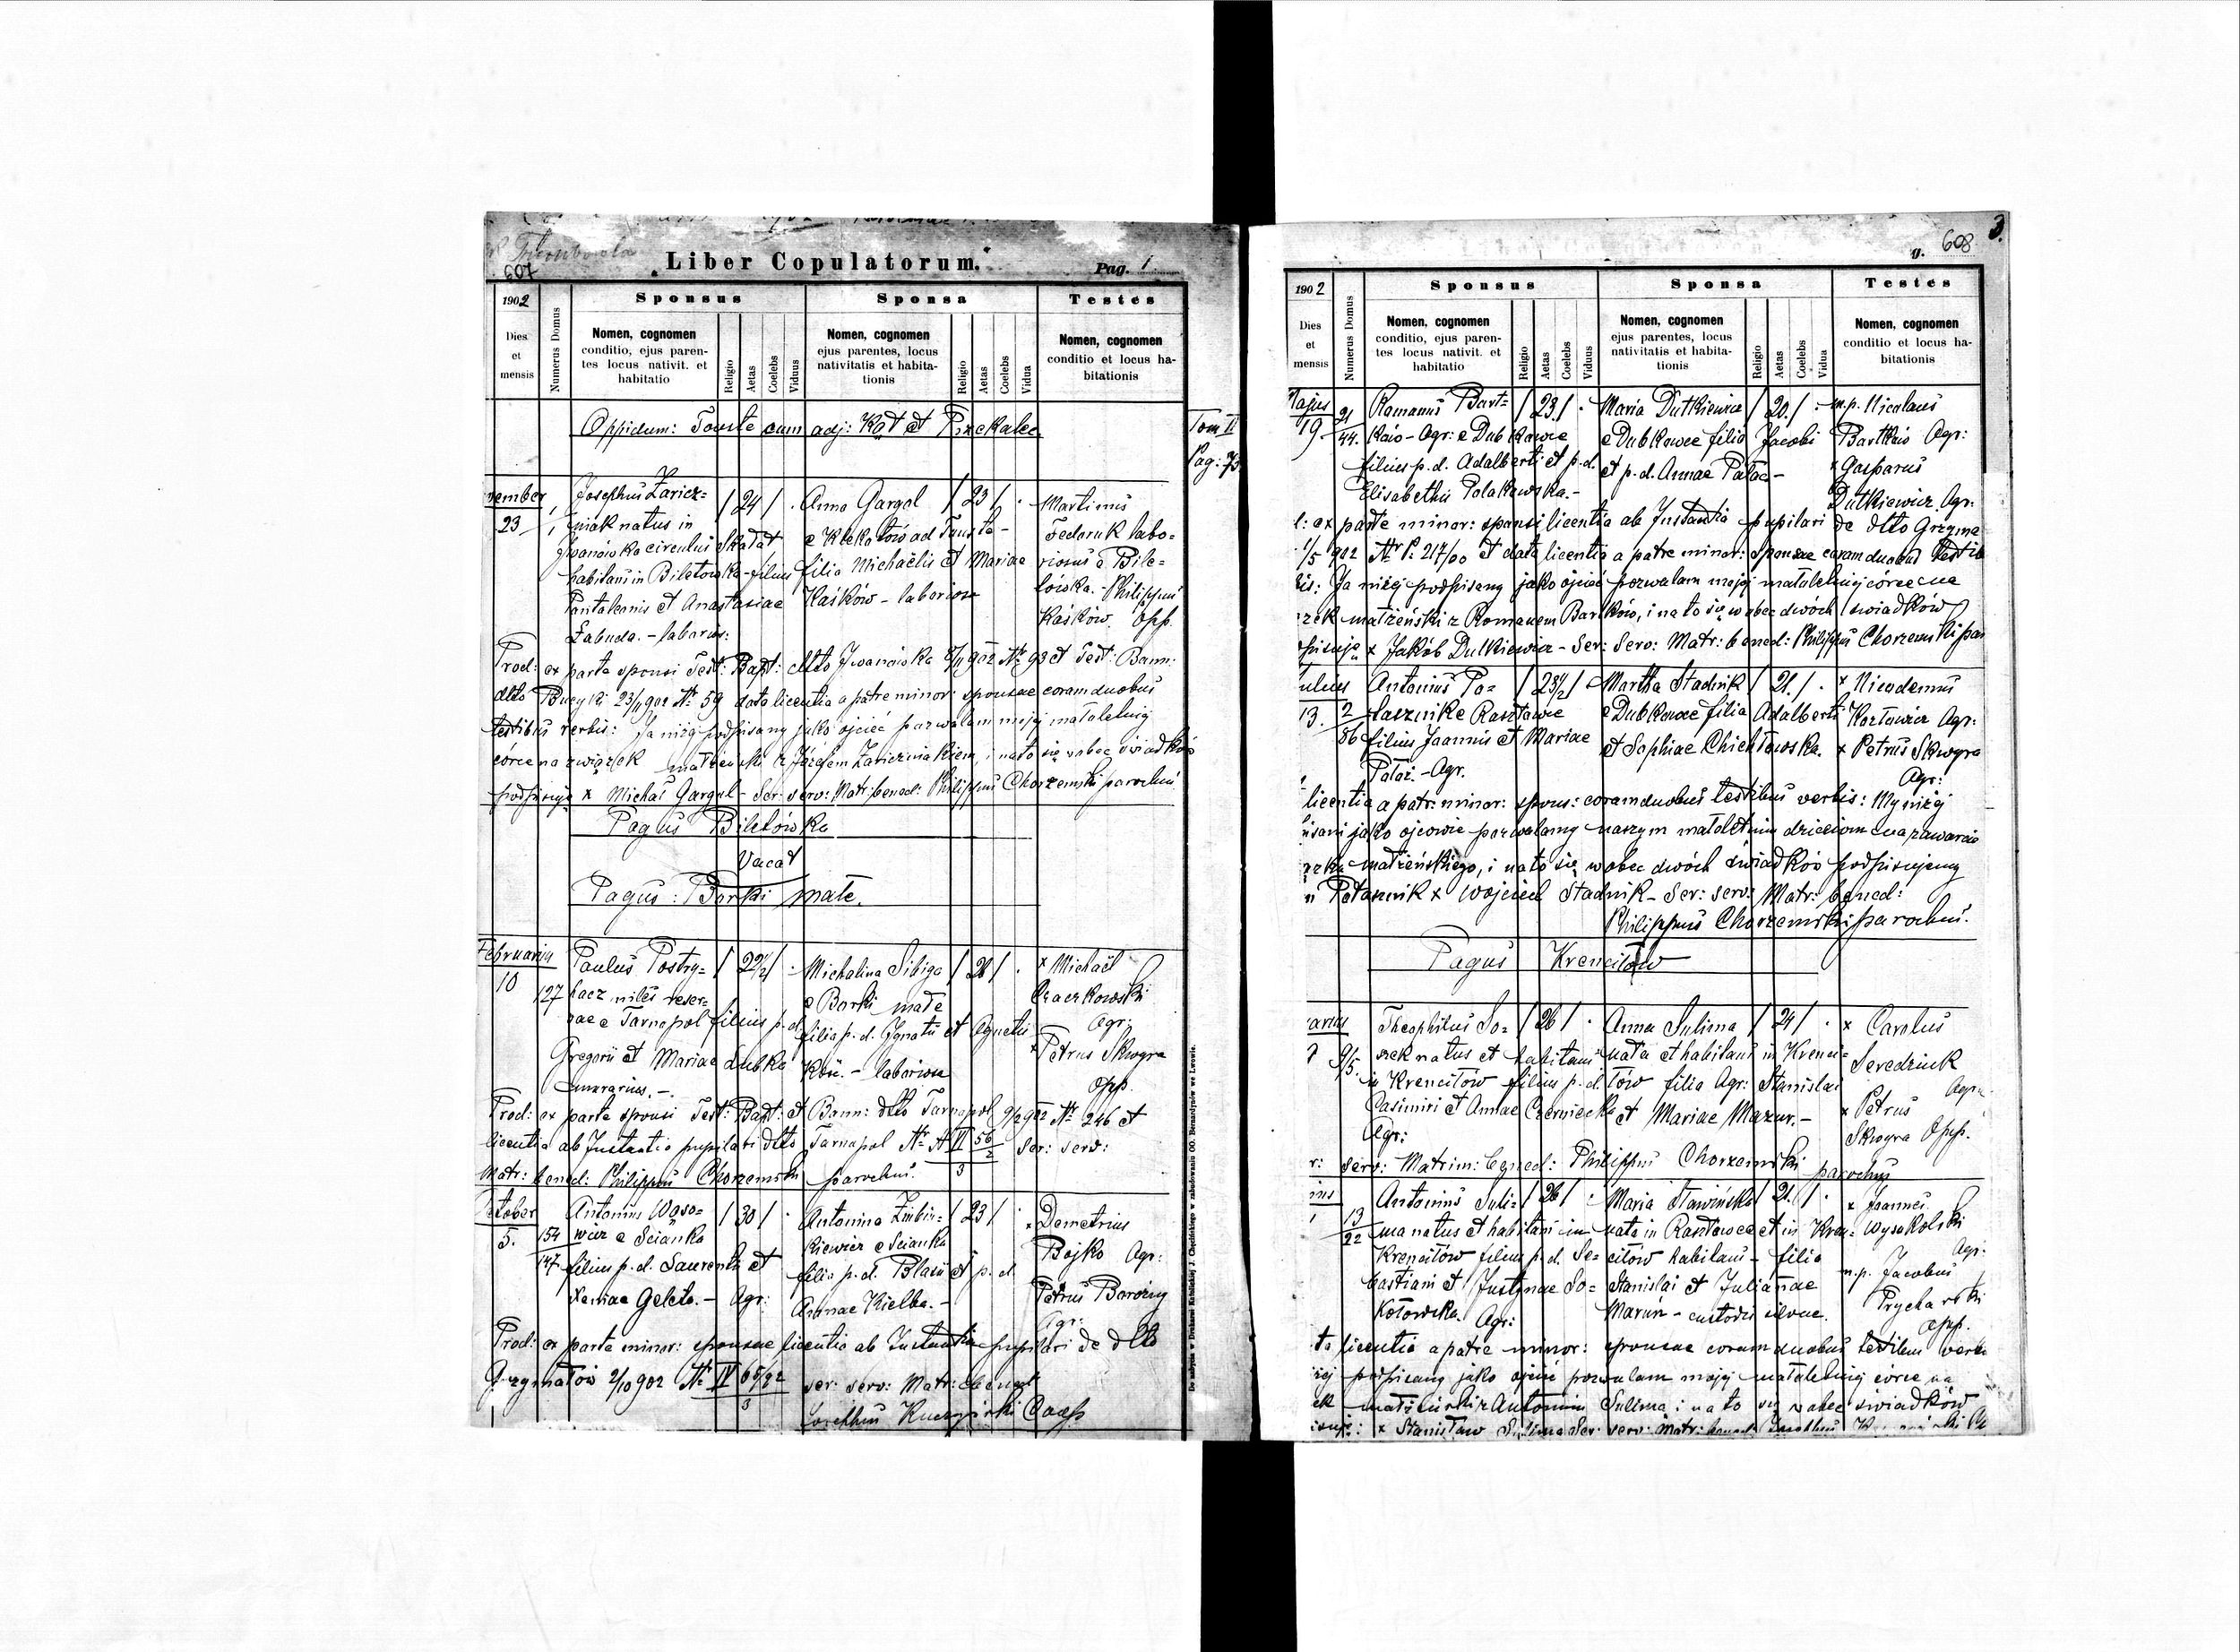 Trembowla
607
Liber Copulatorum.
Pag. 1
1902
Sponsus
Sponsa
Testes
Dies et mensis
Numerus Domus
Nomen, cognomen
conditio, ejus paren-
tes locus nativit. et
habitatio
Religio
Aetas
Coelebs
Viduus
Nomen, cognomen
ejus parentes, locus
nativitatis et habita-
tionis
Religio
Aetas
Coelebs
Vidua
Nomen, cognomen
conditio et locus ha-
bitationis
Oppidum: Touste cum adj: Kąt et Przekalec
Tom II
Pag: 73
vember
23
1
1
Josephus Zaricz=
niak natus in
Iwanówka circulus Skałat
habitans in Biletowka - filius
Pantaleonis et Anastasiae
Łabuda. - laborios:
24
Anna Gargol
e Klekotów ad Touste -
filia Michaëlis et Mariae
Kaśków - laboriosa
23
Martinus
Fedoruk labo=
riosus e Bile=
tówka. - Philippus
Kaśków. Opp.
Prod: ex parte sponsi Test: Bapt: dtto Iwanówka 8/11 902 Nr 93 et Test: Bann:
dtto Bucyki 23/11 902 Nr 59 data licentia a patre minor: sponsae coram duobus
testibus verbis: Ja niżej podpisany jako ojciec pozwalam mojej małoletniej
córce na związek małżeński z Józefem Zariczniakiem, i na to się wobec świadków
podpisuję x Michał Gargol - Ser: serv: Matr: bened: Philippus Chorzemski parochus
Pagus Biletówka
Vacat
Pagus: Borki małe.
Februarius
10
127
Paulus Postry=
hacz miles reser=
vae e Tarnopol filius p. d.
Gregorii et Mariae Łubka
murarius. -
22½
Michalina Sibiga
e Borki małe
filia p. d. Ignatii et Agnetis
- laboriosa
x Michaël
Czaczkowski
Agr:
x Petrus Skwyra
Opp.
Prod: ex parte sponsi Test: Bapt: et Bann: dtto Tarnopol 9/2 902 Nr 246 et
licentia ab Instantia pupilari dtto Tarnopol Nr A II 56/2 Ser: serv:
3
Matr: bened: Philippus Chorzemski parochus.
October
5.
154
147
Antonius Woso=
wicz e Scianka
filius p. d. Laurentii et
Xeniae Geleta. - Agr:
30
Antonina Zinbir=
kiewicz e Scianka
filia p. d. Blasii et p. d.
Annae Kielba. -
23
x Demetrius
Bojko Agr:
Petrus Borożny
Agr:
Prod: ex parte minor: sponsae licentia ab Instantia pupilari de dtto
Grzymałów 2/10 902 Nr IV 65/92 ser: serv: Matr: bened:
3
Josephus Kuczyński Coop
Do nabycia w Drukarni Katolickiej J. Chęcińskiego w zabudowaniu OO. Bernardynów we Lwowie.
3.
608
1902
Sponsus
Sponsa
Testes
Dies et mensis
Numerus Domus
Nomen, cognomen
conditio, ejus paren-
tes locus nativit. et
habitatio
Religio
Aetas
Coelebs
Viduus
Nomen, cognomen
ejus parentes, locus
nativitatis et habita-
tionis
Religio
Aetas
Coelebs
Vidua
Nomen, cognomen
conditio et locus ha-
bitationis
Majus
19
21
44.
Romanus Bart=
ków - Agr: e Dubkowce
filius p. d. Adalberti et p. d.
Elisabethis Polakowska. -
23
Maria Dutkiewicz
e Dubkowce filia Jacobi
et p. d. Annae Pałac -
20
m.p. Nicolaus
Bartków Agr:
x Gasparus
Dutkiewicz Agr:
l: ex parte minor: sponsi licentia ab Instantia pupilari de dtto Grzyma
1/5 902 Nr P. 217/00 et data licentia a patre minor: sponsae coram duobus testi
bis: Ja niżej podpisany jako ojciec pozwalam mojej małoletniej córce na
zek małżeński z Romanem Bartków, i na to się wobec dwóch świadków
pisuję x Jakób Dutkiewicz - Ser: Serv: Matr: bened: Philippus Chorzemski par
ulius
13.
2
86
Antonius Po=
łasznik e Rasztowce
filius Joannis et Mariae
Pałac. - Agr.
23½
Martha Stadnik
e Dubkowce filia Adalberti
et Sophiae Chichłowska.
21.
x Nicodemus
Kozłowicz Agr:
x Petrus Skwyra
Agr:
licentia a patr: minor: spons: coram duobus testibus verbis: My niżej
isani jako ojcowie pozwalamy naszym małoletnim dzieciom na zawarcie
zku małżeńskiego, i na to się wobec dwóch świadków podpisujemy
n Potasznik x Wojciech Stadnik - Ser: serv: Matr: bened:
Philippus Chorzemski parochus.
Pagus Krenciłów
arius
9/5.
Theophilus So=
zek natus et habitans
in Krenciłów filius p. d.
Casimiri et Annae Czerniecka
Agr:
26
Anna Sulima
nata et habitans in Krenci=
łów filia Agr: Stanislai
et Mariae Mazur. -
24
x Carolus
Seredziuk
Agr:
x Petrus
Skwyra Opp.
r: serv: Matrim: bened: Philippus Chorzemski parochus
ius
13
22
Antonius Suli=
ma natus et habitans in
Krenciłów filius p. d. Se=
bastiani et Justynae So=
Kołowska. Agr:
26
Maria Sławińska
nata in Rasztowce et in Kren=
ciłów habitans - filia
Stanislai et Julianae
Marun - custodis silvae.
21.
x Joannes
Wysokolski
Agr:
m.p. Jacobus
Prycharski
Opp.
ta licentia a patre minor: sponsae coram duobus testibus verb
żej podpisany jako ojciec pozwalam mojej małoletniej córce na
ek małżeński z Antonim Sulima i na to się wobec świadków
isuję: x Stanisław Ser: serv: Matr: bened: Josephus